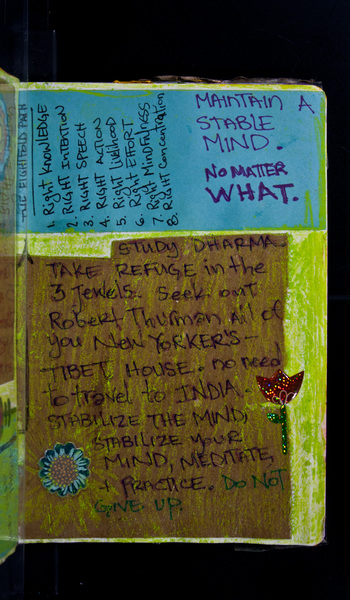 THE EIGHTFOLD PATH
1. Right KNOWLEDGE
2. RIGHT INTENTION
3. RIGHT SPEECH
4. RIGHT ACTION
5. Right Livlihood
6. Right EFFORT
7. Right MindfulNESS
8. Right Concentration
MAINTAIN A
STABLE
MIND.
NO MATTER
WHAT.
STUDY DHARMA
TAKE REFUGE in the
3 Jewels. Seek out
Robert Thurman all of
you NEW YORKER'S -
TIBET HOUSE. no need
to travel to INDIA.
STABILIZE THE MIND,
STABILIZE YOUR
MIND, MEDITATE,
+ PRACTICE. DO NOT
GIVE UP.